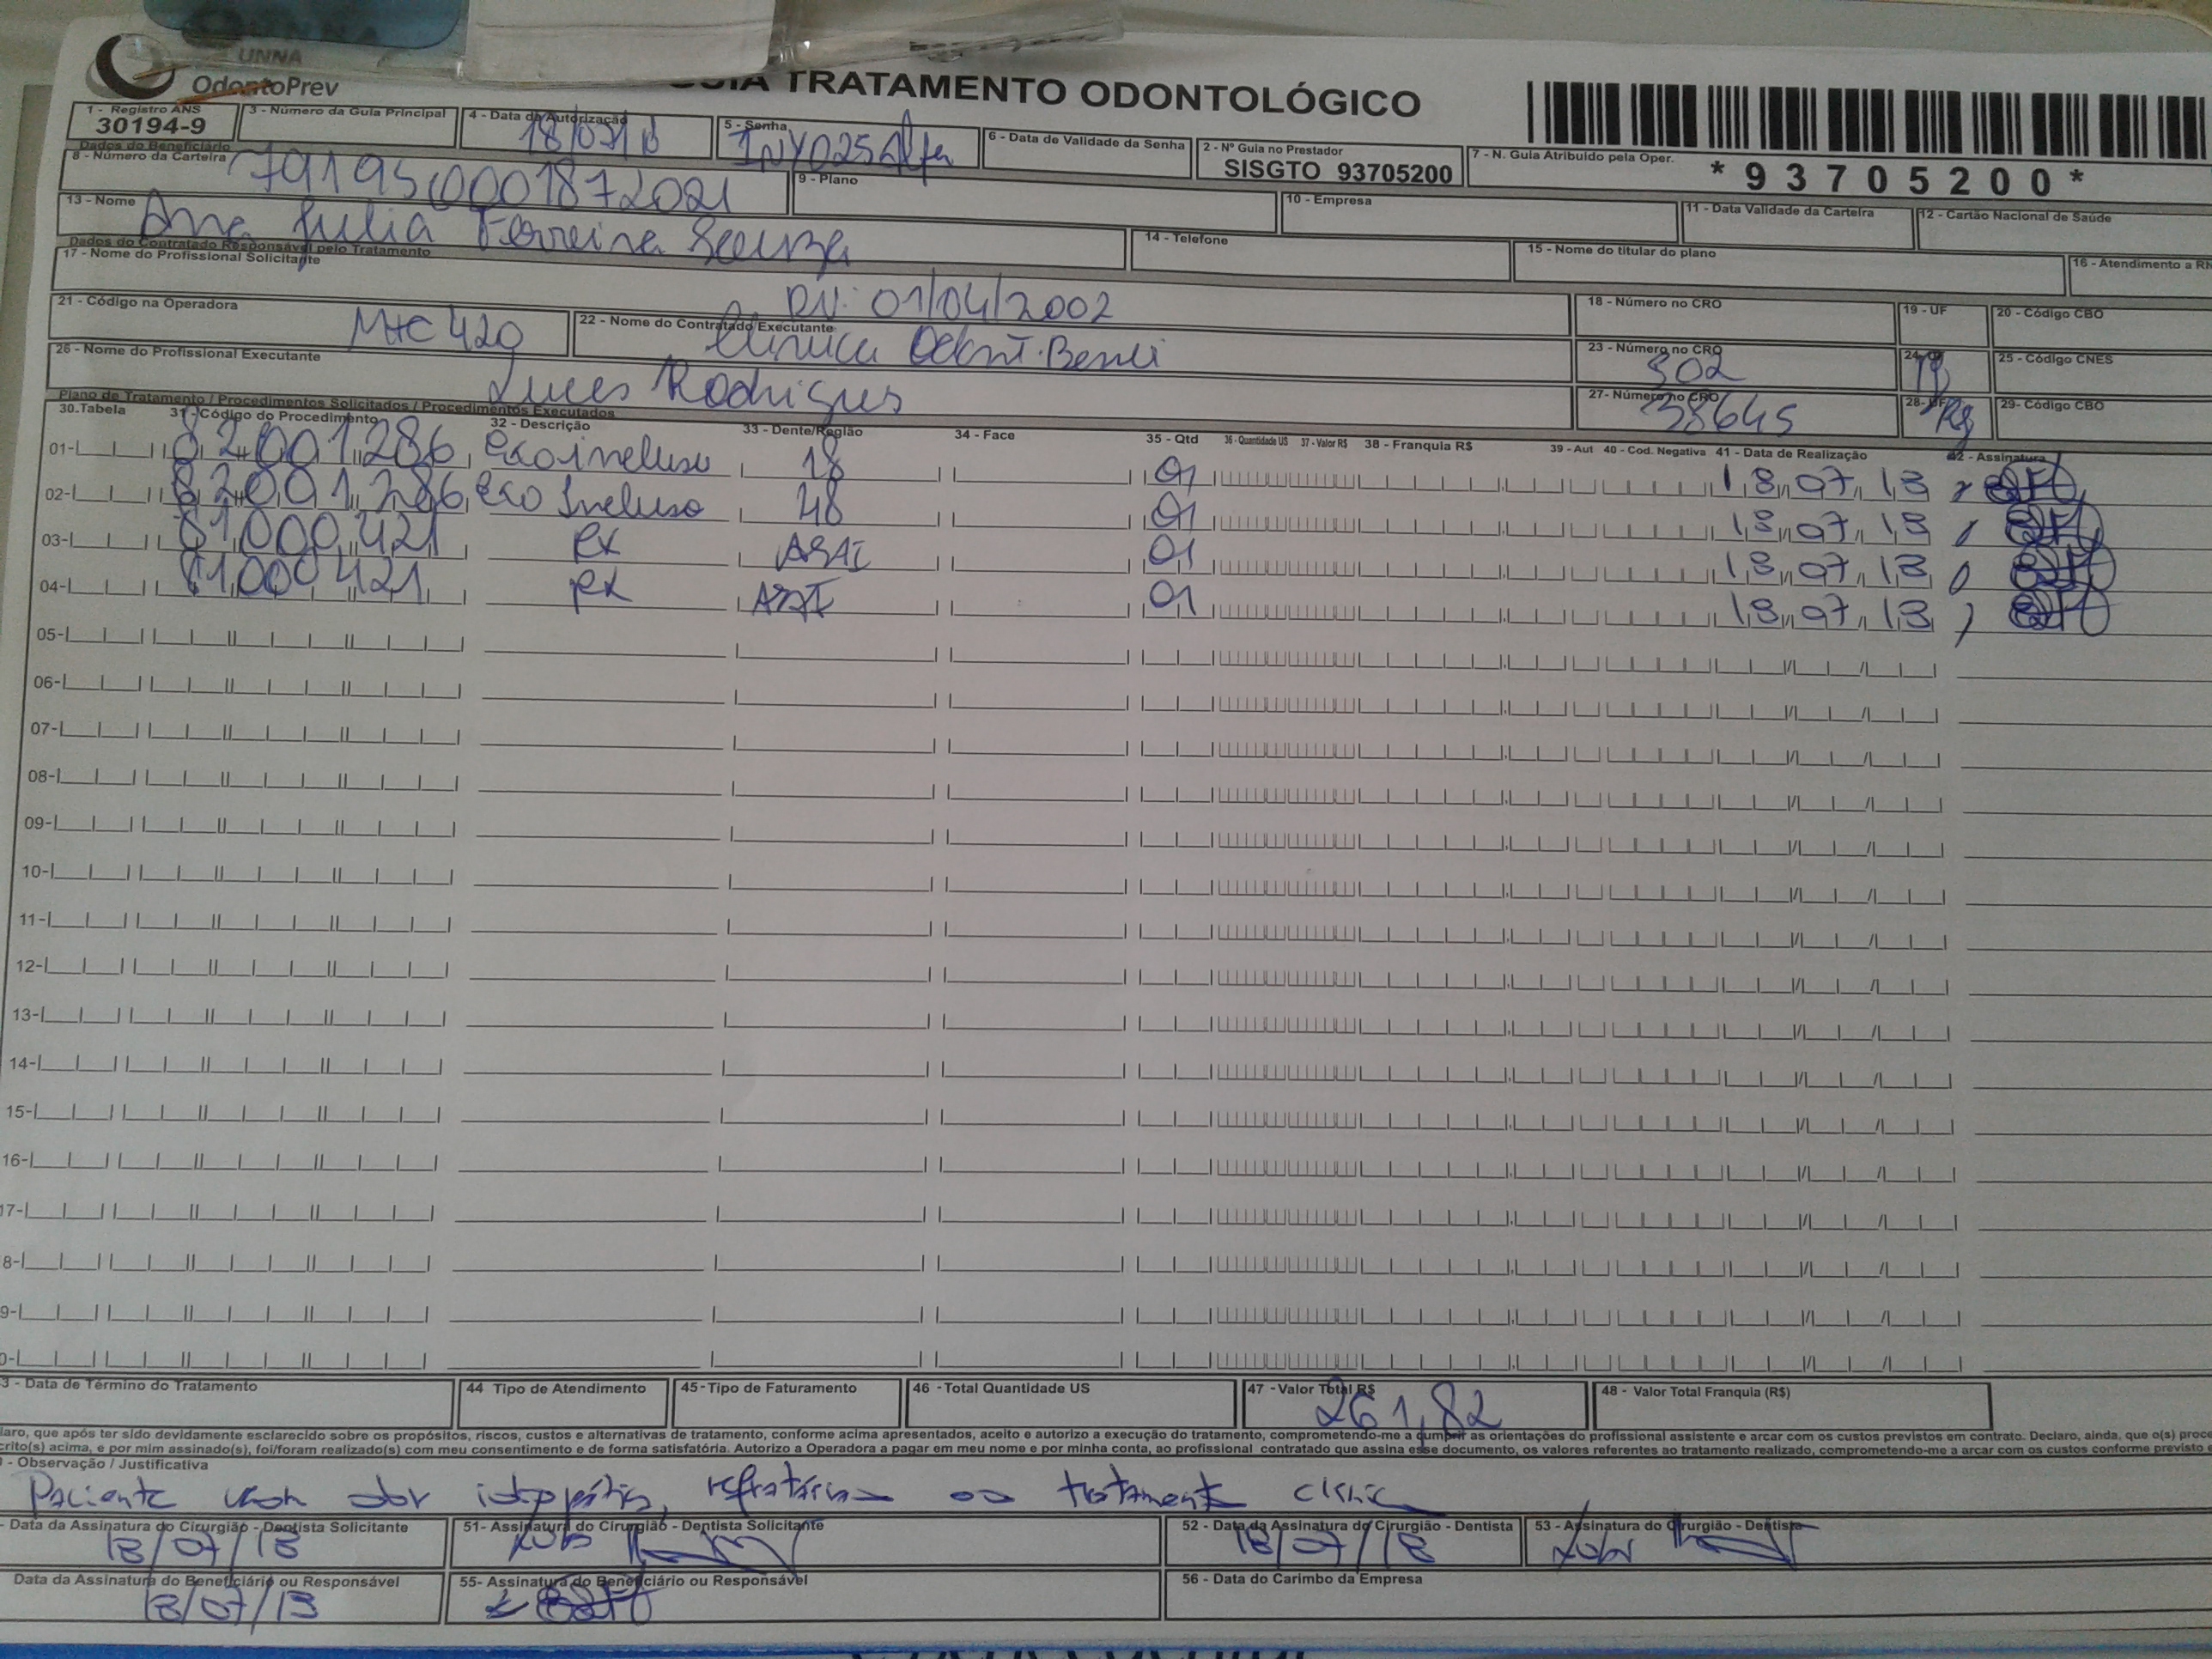 UNNA
OdontoPrev
TRATAMENTO ODONTOLÓGICO
1 - Registro ANS
30194-9
3 - Número da Guia Principal
4 - Data da Autorização
5 - Senha
6 - Data de Validade da Senha
2 - Nº Guia no Prestador
SISGTO 93705200
7 - N. Guia Atribuido pela Oper.
*93705200*
Dados do Beneficiário
8 - Número da Carteira
9 - Plano
10 - Empresa
11 - Data Validade da Carteira
12 - Cartão Nacional de Saúde
13 - Nome
Ana Julia Ferreira Souza
14 - Telefone
15 - Nome do titular do plano
16 - Atendimento a RN
Dados do Contratado Responsável pelo Tratamento
17 - Nome do Profissional Solicitante
DN: 01/04/2002
18 - Número no CRO
19 - UF
20 - Código CBO
21 - Código na Operadora
22 - Nome do Contratado Executante
Clinica Odont.
23 - Número no CRO
302
25 - Código CNES
26 - Nome do Profissional Executante
Lucas Rodrigues
27- Número no CRO
38645
28- UF
RJ
29- Código CBO
Plano de Tratamento / Procedimentos Solicitados / Procedimentos Executados
30.Tabela 31 - Código do Procedimento 32 - Descrição 33 - Dente/Região 34 - Face 35 - Qtd 36 - Quantidade US 37 - Valor R$ 38 - Franquia R$ 39 - Aut 40 - Cod. Negativa 41 - Data de Realização 42 - Assinatura
01- 82001286 exo incluso 18 01 18 07 18
02- 82001286 exo Incluso 48 01 18 07 18
03- 81000421 RX 01 18 07 18
04- 81000421 RX 01 18 07 18
05-
06-
07-
08-
09-
10-
11-
12-
13-
14-
15-
16-
17-
8-
9-
0-
3 - Data de Término do Tratamento
44 Tipo de Atendimento
45 - Tipo de Faturamento
46 - Total Quantidade US
47 - Valor Total R$
261,82
48 - Valor Total Franquia (R$)
laro, que após ter sido devidamente esclarecido sobre os propósitos, riscos, custos e alternativas de tratamento, conforme acima apresentados, aceito e autorizo a execução do tratamento, comprometendo-me a cumprir as orientações do profissional assistente e arcar com os custos previstos em contrato. Declaro, ainda, que o(s) proce
crito(s) acima, e por mim assinado(s), foi/foram realizado(s) com meu consentimento e de forma satisfatória. Autorizo a Operadora a pagar em meu nome e por minha conta, ao profissional contratado que assina esse documento, os valores referentes ao tratamento realizado, comprometendo-me a arcar com os custos conforme previsto e
- Observação / Justificativa
Paciente com dor idiopática, refratária ao tratamento clínico
- Data da Assinatura do Cirurgião - Dentista Solicitante
18/07/18
51- Assinatura do Cirurgião - Dentista Solicitante
52 - Data da Assinatura do Cirurgião - Dentista
18/07/18
53 - Assinatura do Cirurgião - Dentista
Data da Assinatura do Beneficiário ou Responsável
18/07/18
55- Assinatura do Beneficiário ou Responsável
56 - Data do Carimbo da Empresa